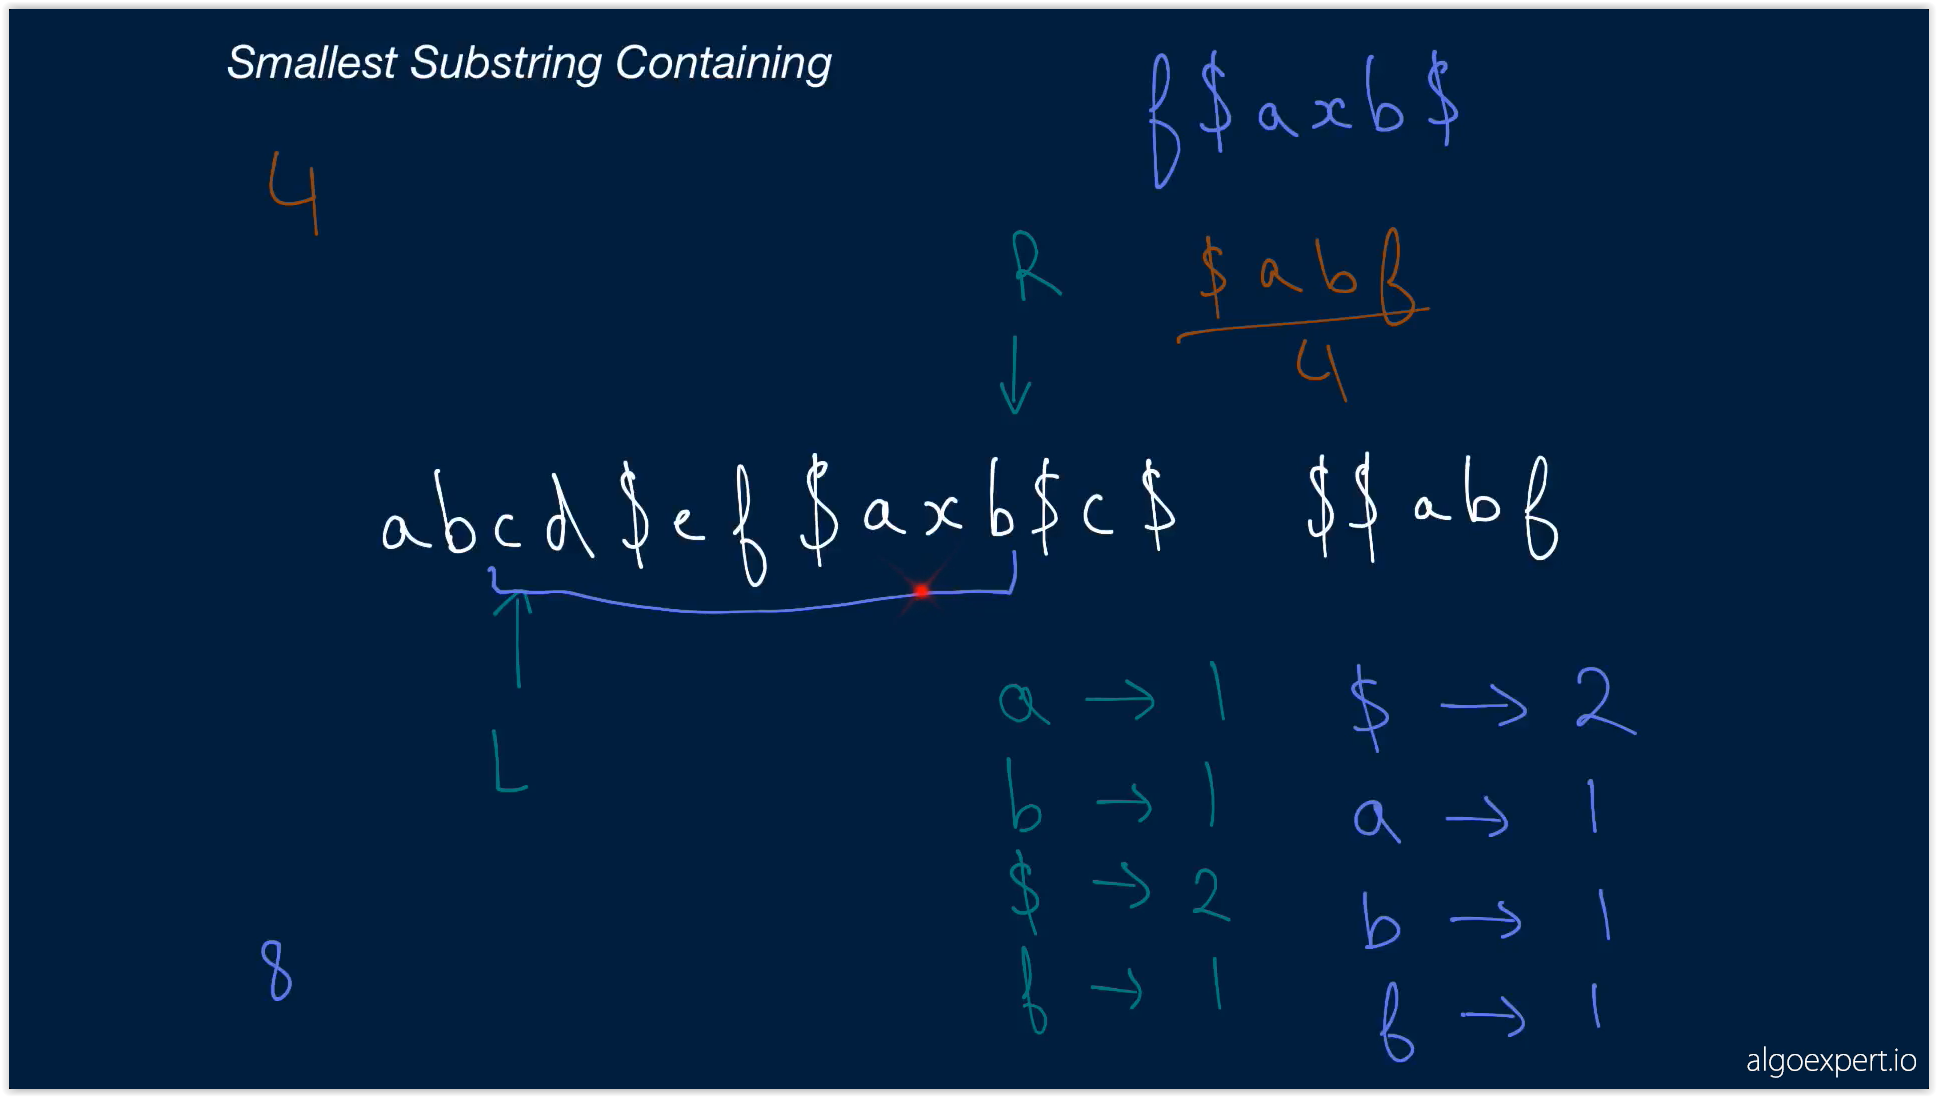 Smallest Substring Containing
f$axb$
4
R
$abf
4
abcd$ef$axb$c$ $$abf
L
a → 1 $ → 2
b → 1 a → 1
$ → 2 b → 1
f → 1 f → 1
8
algoexpert.io